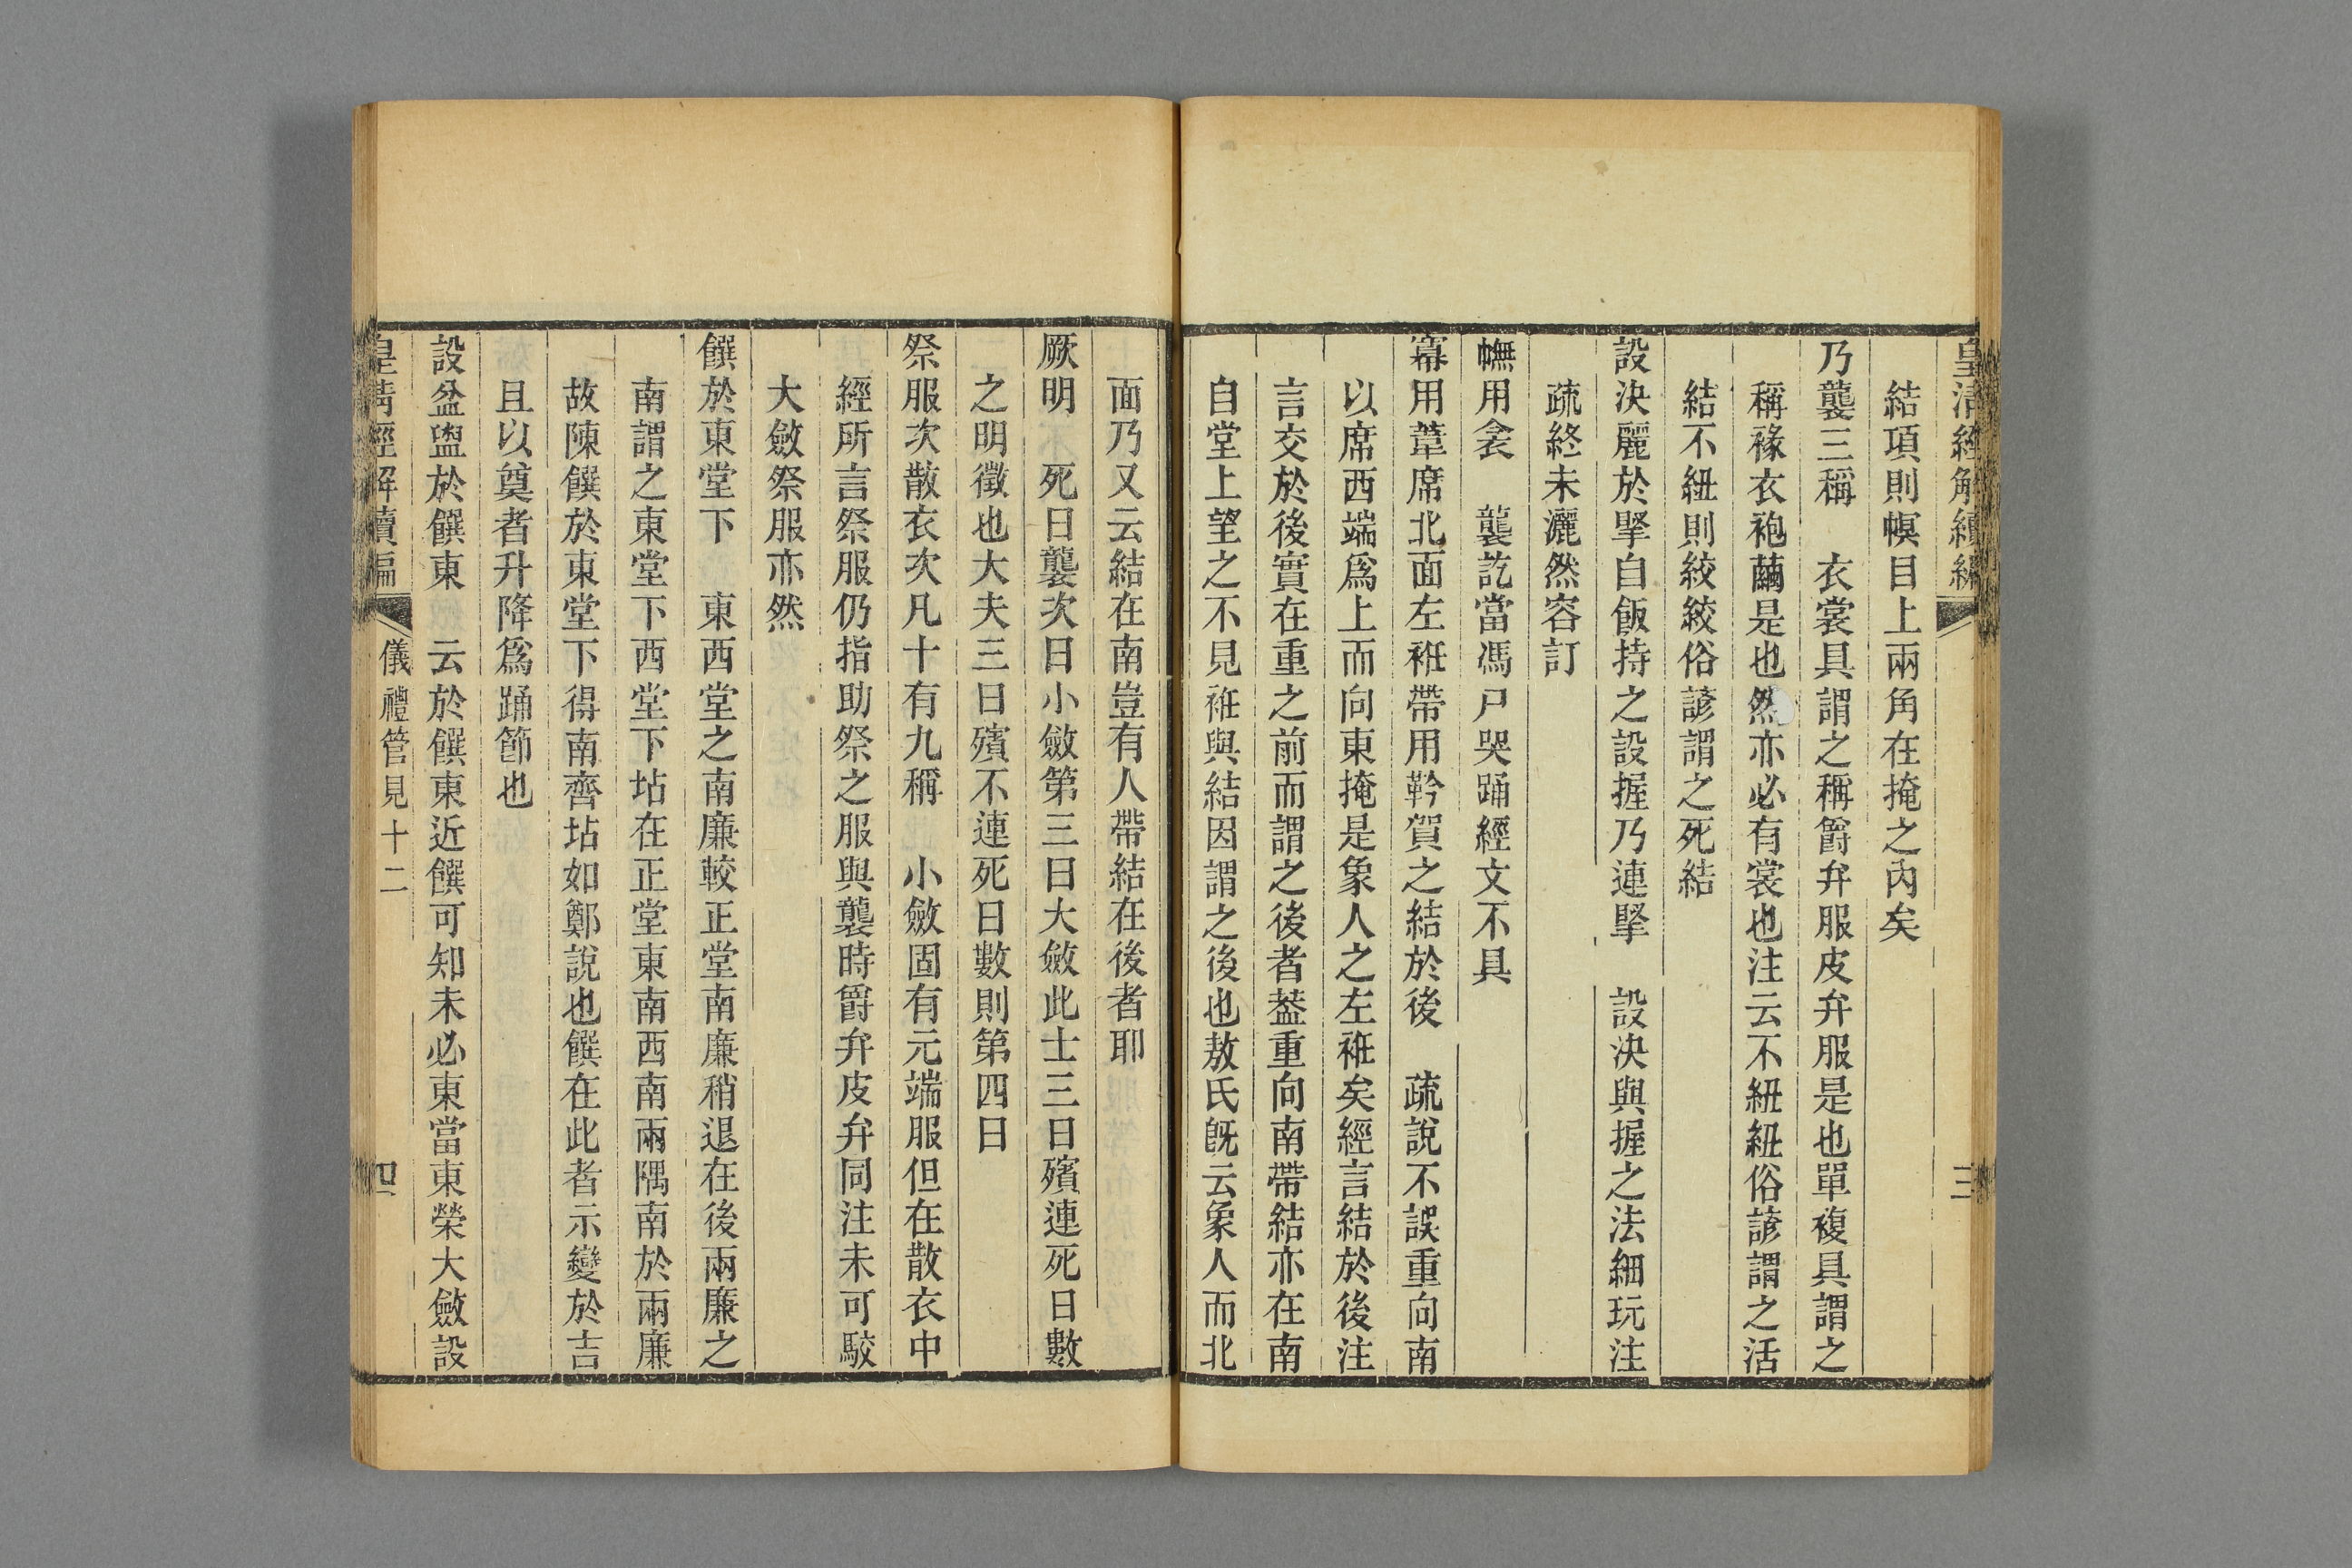 皇清經解續編
三
結項則幎目上兩角在掩之內矣
乃襲三稱　衣裳具謂之稱爵弁服皮弁服是也單複具謂之
稱褖衣袍繭是也然亦必有裳也注云不紐紐俗諺謂之活
結不紐則絞絞俗諺謂之死結
設決麗於掔自飯持之設握乃連掔　設決與握之法細玩注
疏終未灑然容訂
幠用衾　襲訖當馮尸哭踊經文不具
冪用葦席北面左衽帶用靲賀之結於後　疏說不誤重向南
以席西端爲上而向東掩是象人之左衽矣經言結於後注
言交於後實在重之前而謂之後者葢重向南帶結亦在南
自堂上望之不見衽與結因謂之後也敖氏旣云象人而北
面乃又云結在南豈有人帶結在後者耶
厥明　死日襲次日小斂第三日大斂此士三日殯連死日數
之明徵也大夫三日殯不連死日數則第四日
祭服次散衣次凡十有九稱　小斂固有元端服但在散衣中
經所言祭服仍指助祭之服與襲時爵弁皮弁同注未可駁
大斂祭服亦然
饌於東堂下　東西堂之南廉較正堂南廉稍退在後兩廉之
南謂之東堂下西堂下坫在正堂東南西南兩隅南於兩廉
故陳饌於東堂下得南齊坫如鄭說也饌在此者示變於吉
且以奠者升降爲踊節也
設盆盥於饌東　云於饌東近饌可知未必東當東榮大斂設
皇清經解續編
儀禮管見十二
四